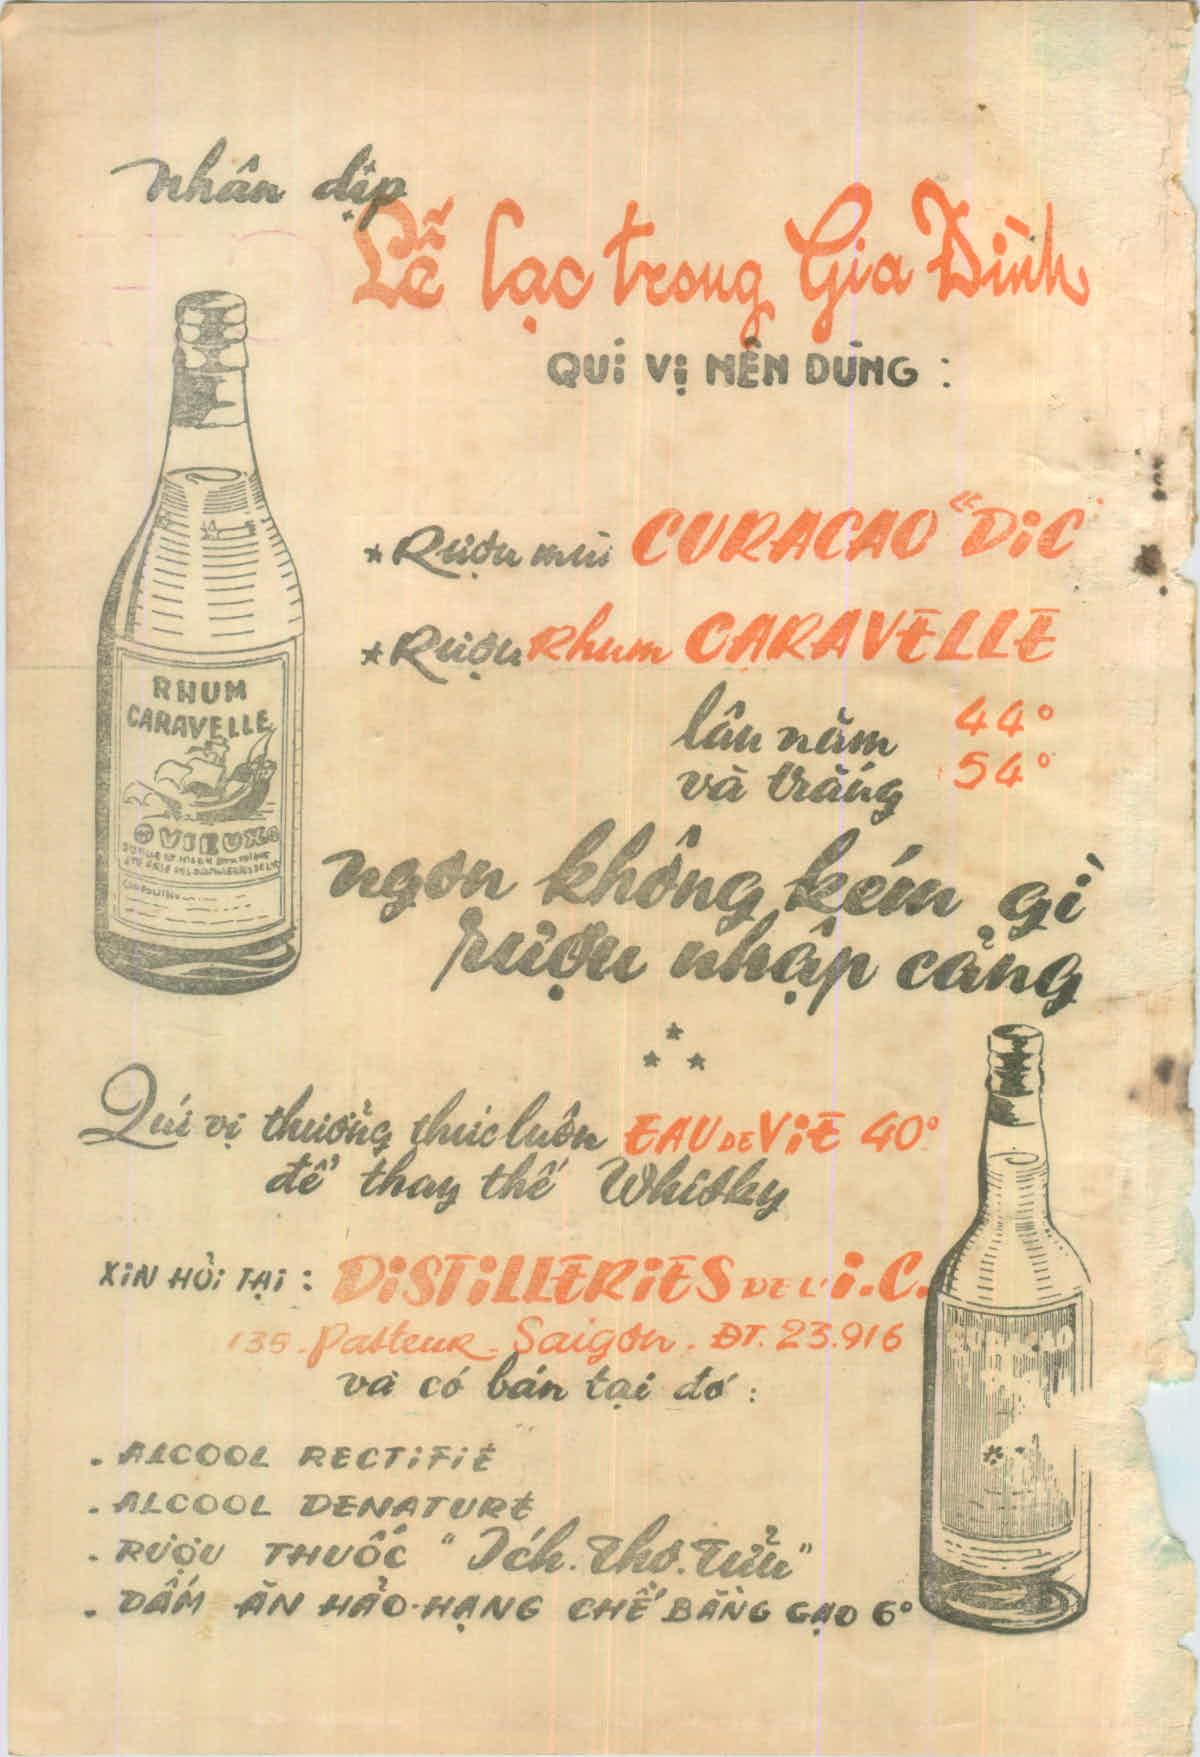 nhân dịp
Lễ lạc trong Gia Đình
QUÍ VỊ NÊN DÙNG :
* Rượu mùi CURACAO "DIC
* Rượu Rhum CARAVELLE
lâu năm 44°
và trắng 54°
ngon không kém gì
rượu nhập cảng
RHUM
CARAVELLE
VIEUX
Quí vị thưởng thức luôn EAU DE VIE 40°
để thay thế Whisky
XIN HỎI TẠI : DISTILLERIES DE L'I.C.
135 - Pasteur - Saigon . ĐT. 23.916
và có bán tại đó :
. ALCOOL RECTIFIÉ
. ALCOOL DENATURÉ
. RƯỢU THUỐC "Ích.Thọ.Tửu"
. DẤM ĂN HẢO-HẠNG CHẾ BẰNG GẠO 6°
CURACAO